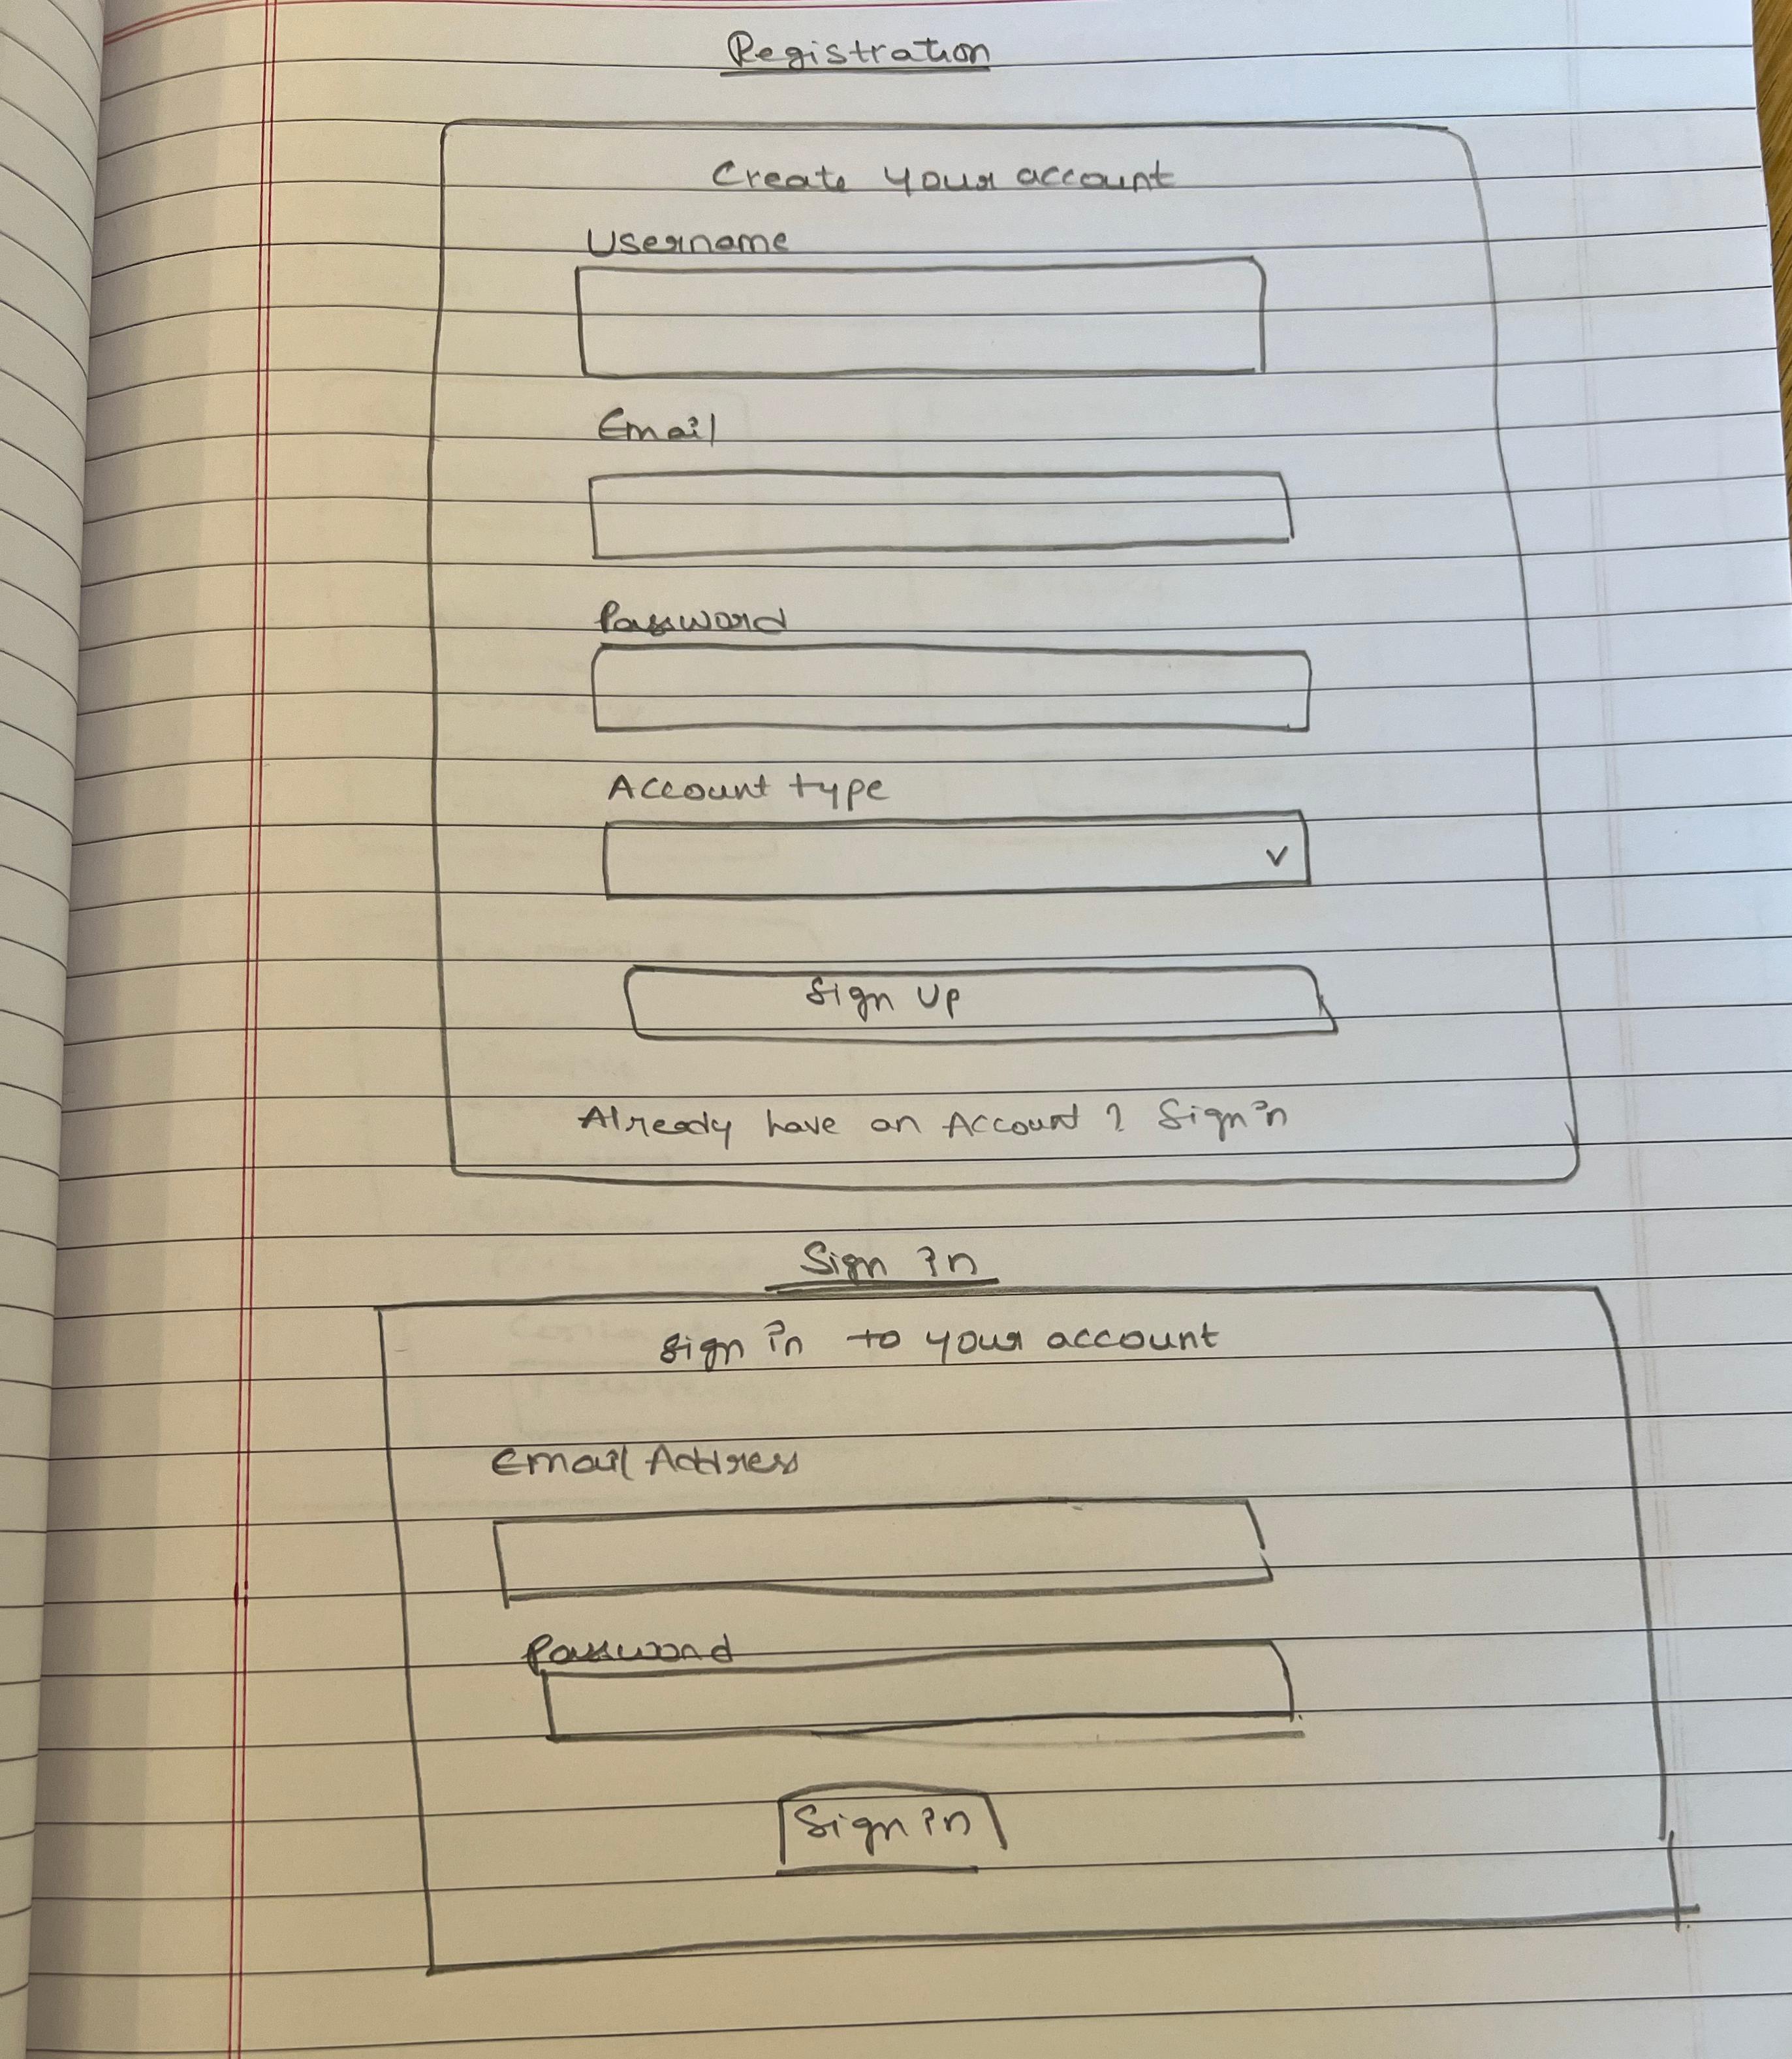 Registration
Create your account
Username
Email
Password
Account type
Sign Up
Already have an Account ? Sign in
Sign in
Sign in to your account
Email Address
Password
Sign in